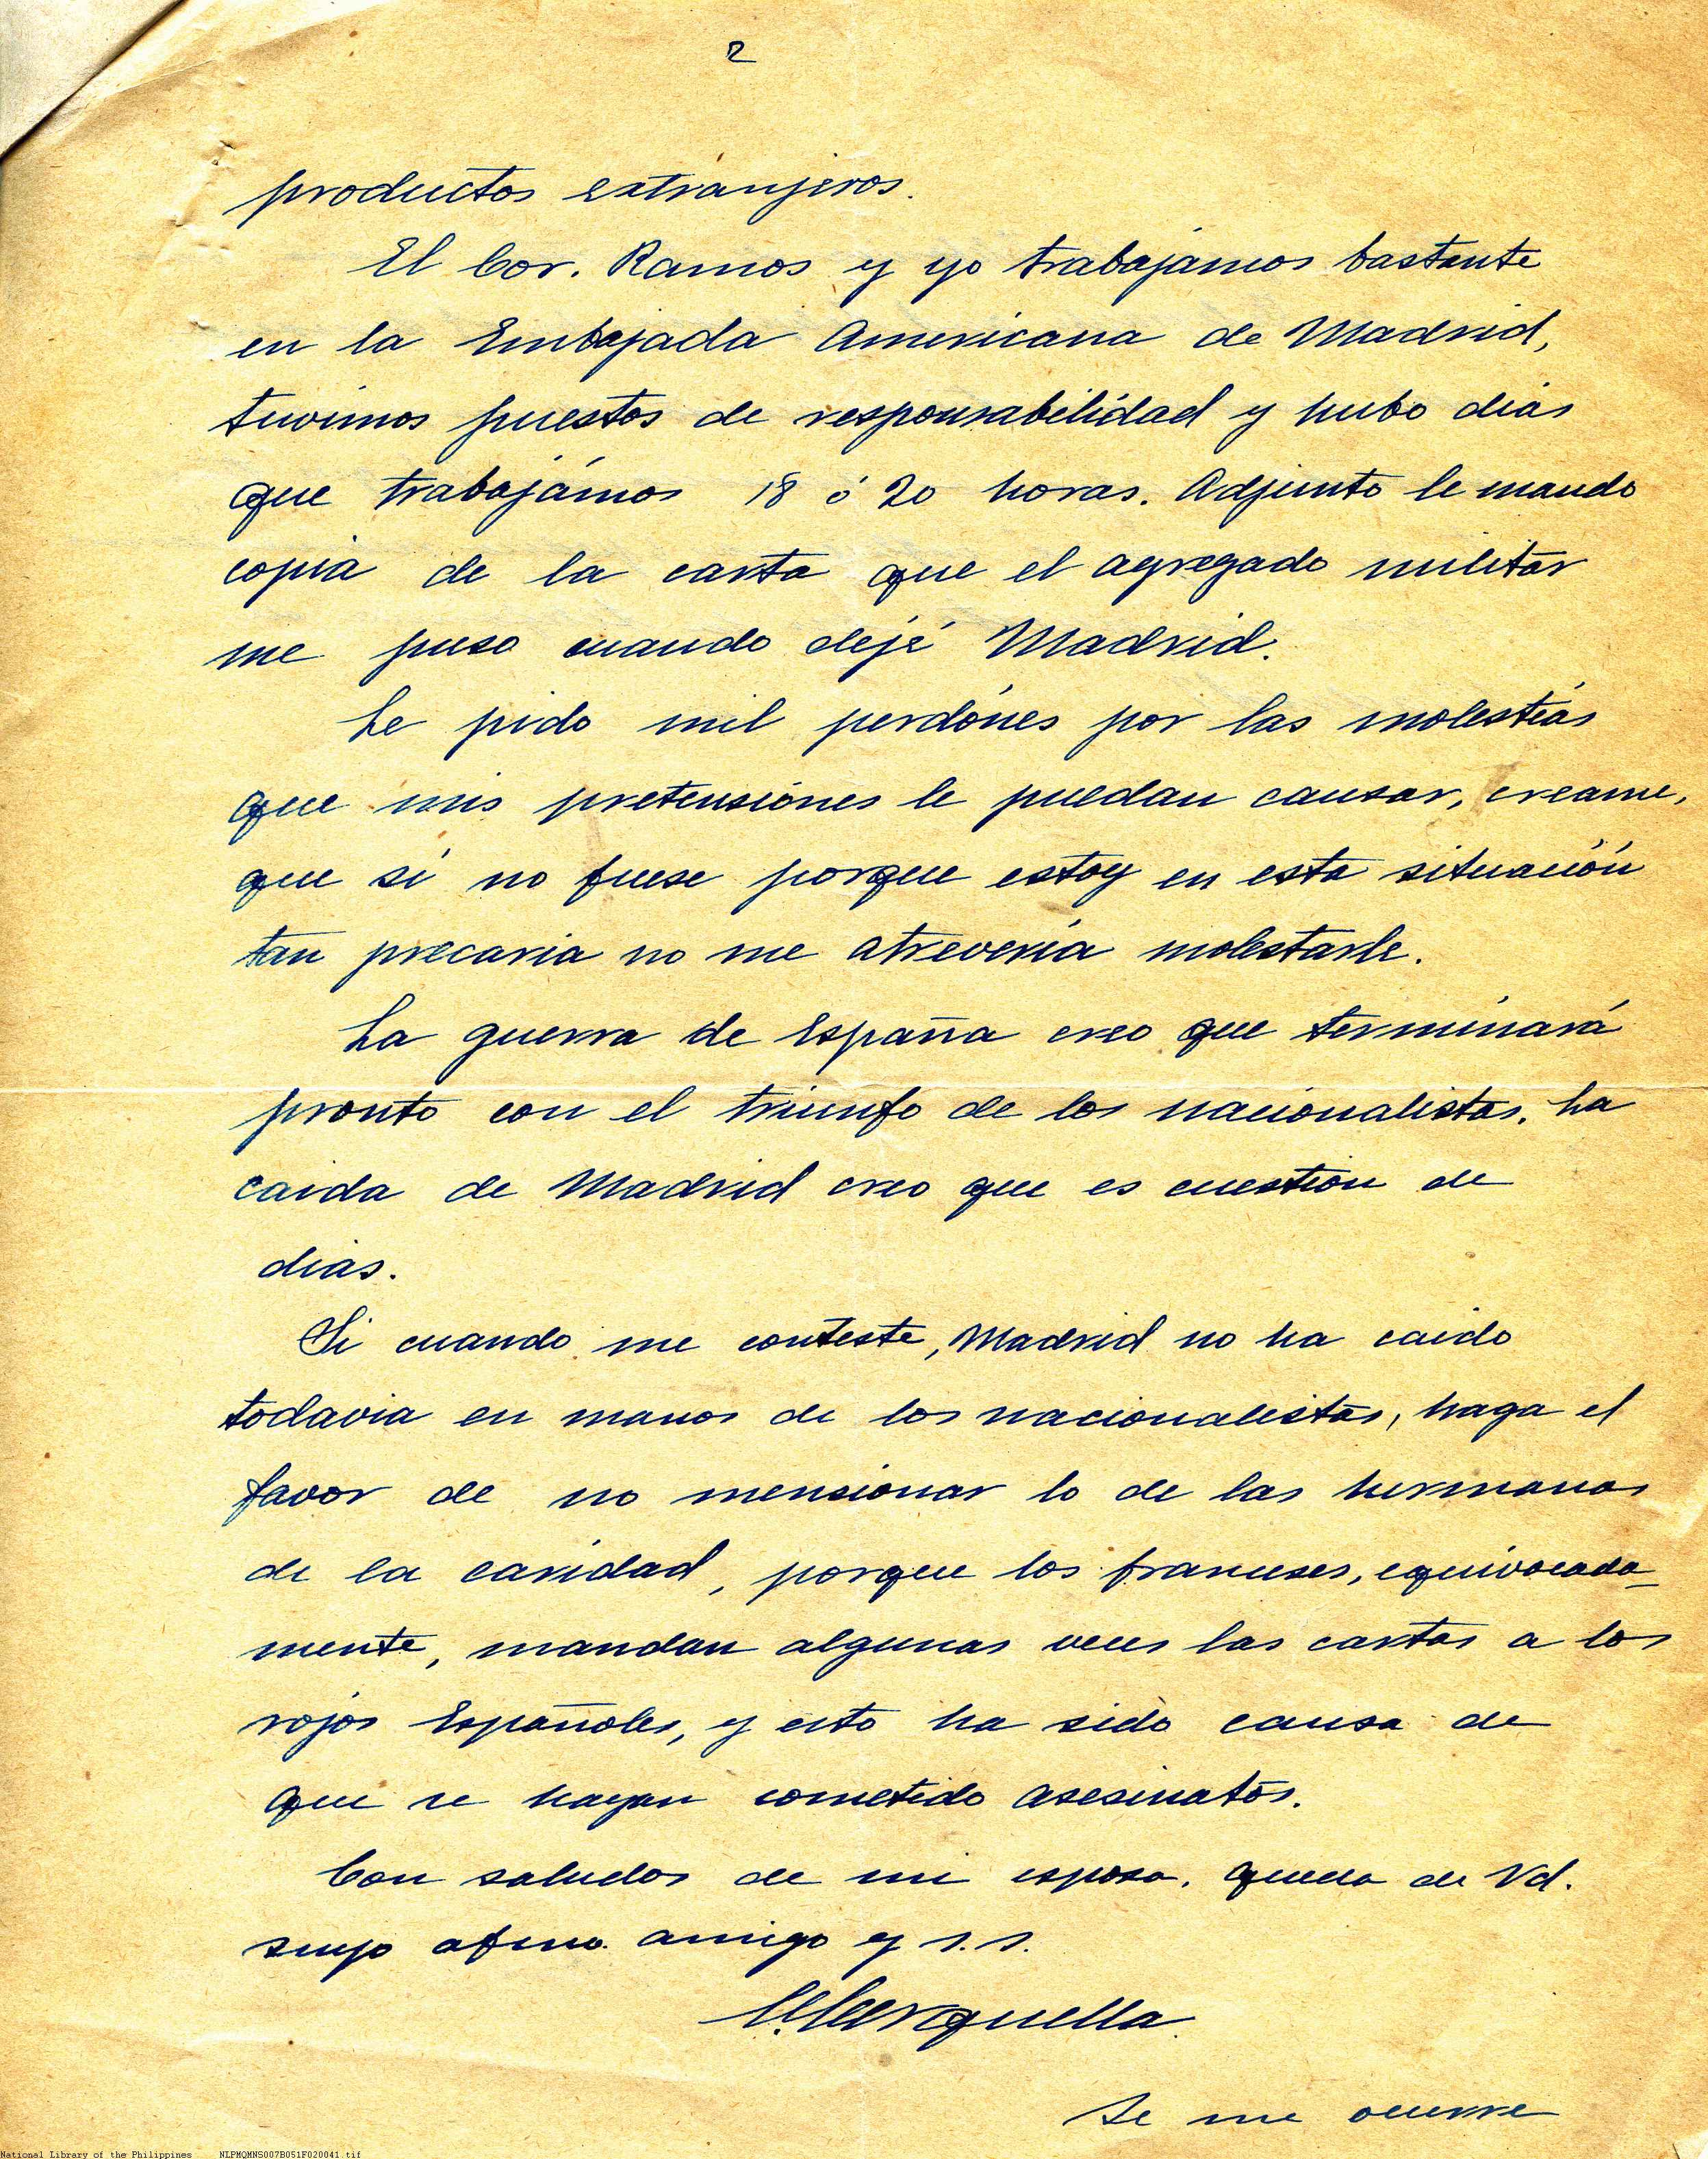 2
productos extranjeros.
El Cor. Ramos y yo trabajámos bastante
en la Embajada Americana de Madrid,
tuvimos puestos de responsabilidad y hubo dias
que trabajámos 18 ó 20 horas. Adjunto le mando
copia de la carta que el agregado militar
me puso cuando dejé Madrid.
Le pido mil perdónes por las molestias
que mis pretensiones le puedan causar, creame,
que si no fuese porque estoy en esta situación
tan precaria no me atreveria molestarle.
La guerra de España creo que terminará
pronto con el triunfo de los nacionalistas. La
caida de Madrid creo que es cuestion de
dias.
Si cuando me conteste, Madrid no ha caido
todavia en manos de los nacionalistas, haga el
favor de no mensionar lo de las hermanas
de la caridad, porque los franceses, equivocada-
mente, mandan algunas veces las cartas a los
rojos Españoles, y esto ha sido causa de
que se hayan cometido asesinatos.
Con saludos de mi esposa, queda de Vd.
suyo afmo. amigo y s.s.
Se me ocurre
National Library of the Philippines NLPMQMNS007B051F020041.tif